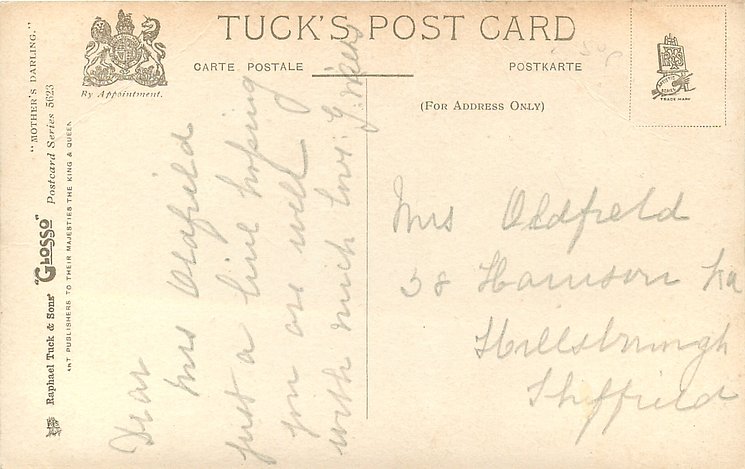 TUCK'S POST CARD
CARTE POSTALE
POSTKARTE
(FOR ADDRESS ONLY)
By Appointment.
TRADE MARK
"MOTHER'S DARLING."
Raphael Tuck & Sons' "GLOSSO" Postcard Series 5623
ART PUBLISHERS TO THEIR MAJESTIES THE KING & QUEEN
Dear
Mrs Oldfield
just a line hoping
you are well
with much love. G.
Mrs Oldfield
38 Harrison
Hillsbrough
Sheffield